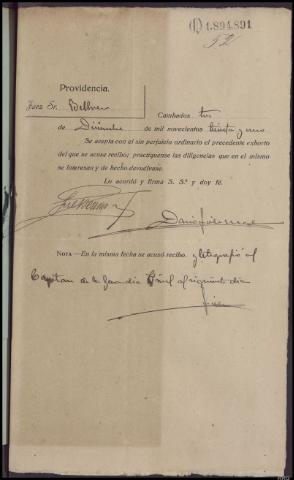 (1) 1.894.891
52
Providencia.
Juez Sr.
Cambados tres
de Diciembre de mil novecientos treinta y uno
Se acepta con el sin perjuicio ordinario el precedente exhorto
del que se acusa recibo; practíquense las diligencias que en el mismo
se interesan y de hecho devuélvase.
Lo acordó y firma S. Sª y doy fé.
NOTA —En la misma fecha se acusó recibo y telegrafió al
Capitan de la Guardia Civil al siguiente dia